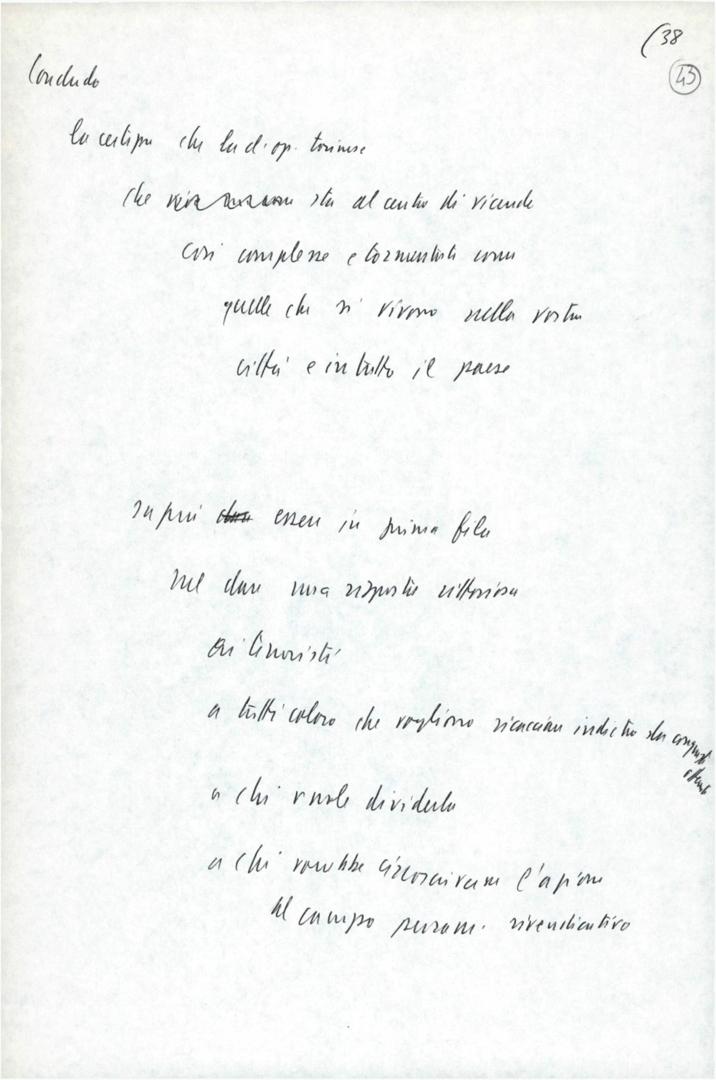 (38
43
Concludo
la certezza che la cl. op. torinese
che sta al centro di vicende
così complesse e tormentate come
quelle che si vivono nella vostra
città e in tutto il paese
saprà essere in prima fila
nel dare una risposta vittoriosa
ai terroristi
a tutti coloro che vogliono ricacciare indietro
a chi vuole dividerla
a chi vorrebbe circoscrivere l'azione
al campo puram. rivendicativo